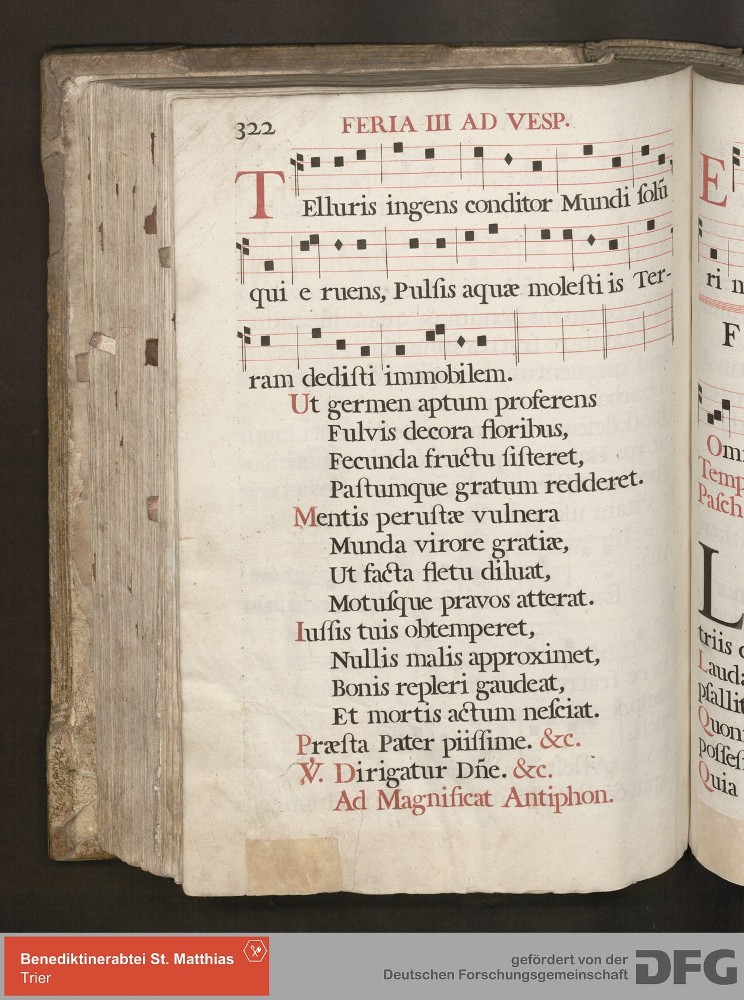 322 FERIA III AD VESP.
TElluris ingens conditor Mundi ſolũ
qui e ruens, Pulſis aquæ moleſti is Ter-
ram dediſti immobilem.
Ut germen aptum proferens
Fulvis decora floribus,
Fecunda fructu ſiſteret,
Paſtumque gratum redderet.
Mentis peruſtæ vulnera
Munda virore gratiæ,
Ut facta fletu diluat,
Motuſque pravos atterat.
Iuſſis tuis obtemperet,
Nullis malis approximet,
Bonis repleri gaudeat,
Et mortis actum neſciat.
Præſta Pater piiſſime. &c.
℣. Dirigatur Dñe. &c.
Ad Magnificat Antiphon.
E
ri
F
Omn
Temp
Paſch
L
triis
Lauda
pſallit
Quon
poſſeſſ
Quia
Benediktinerabtei St. Matthias
Trier
gefördert von der
Deutschen Forschungsgemeinschaft
DFG